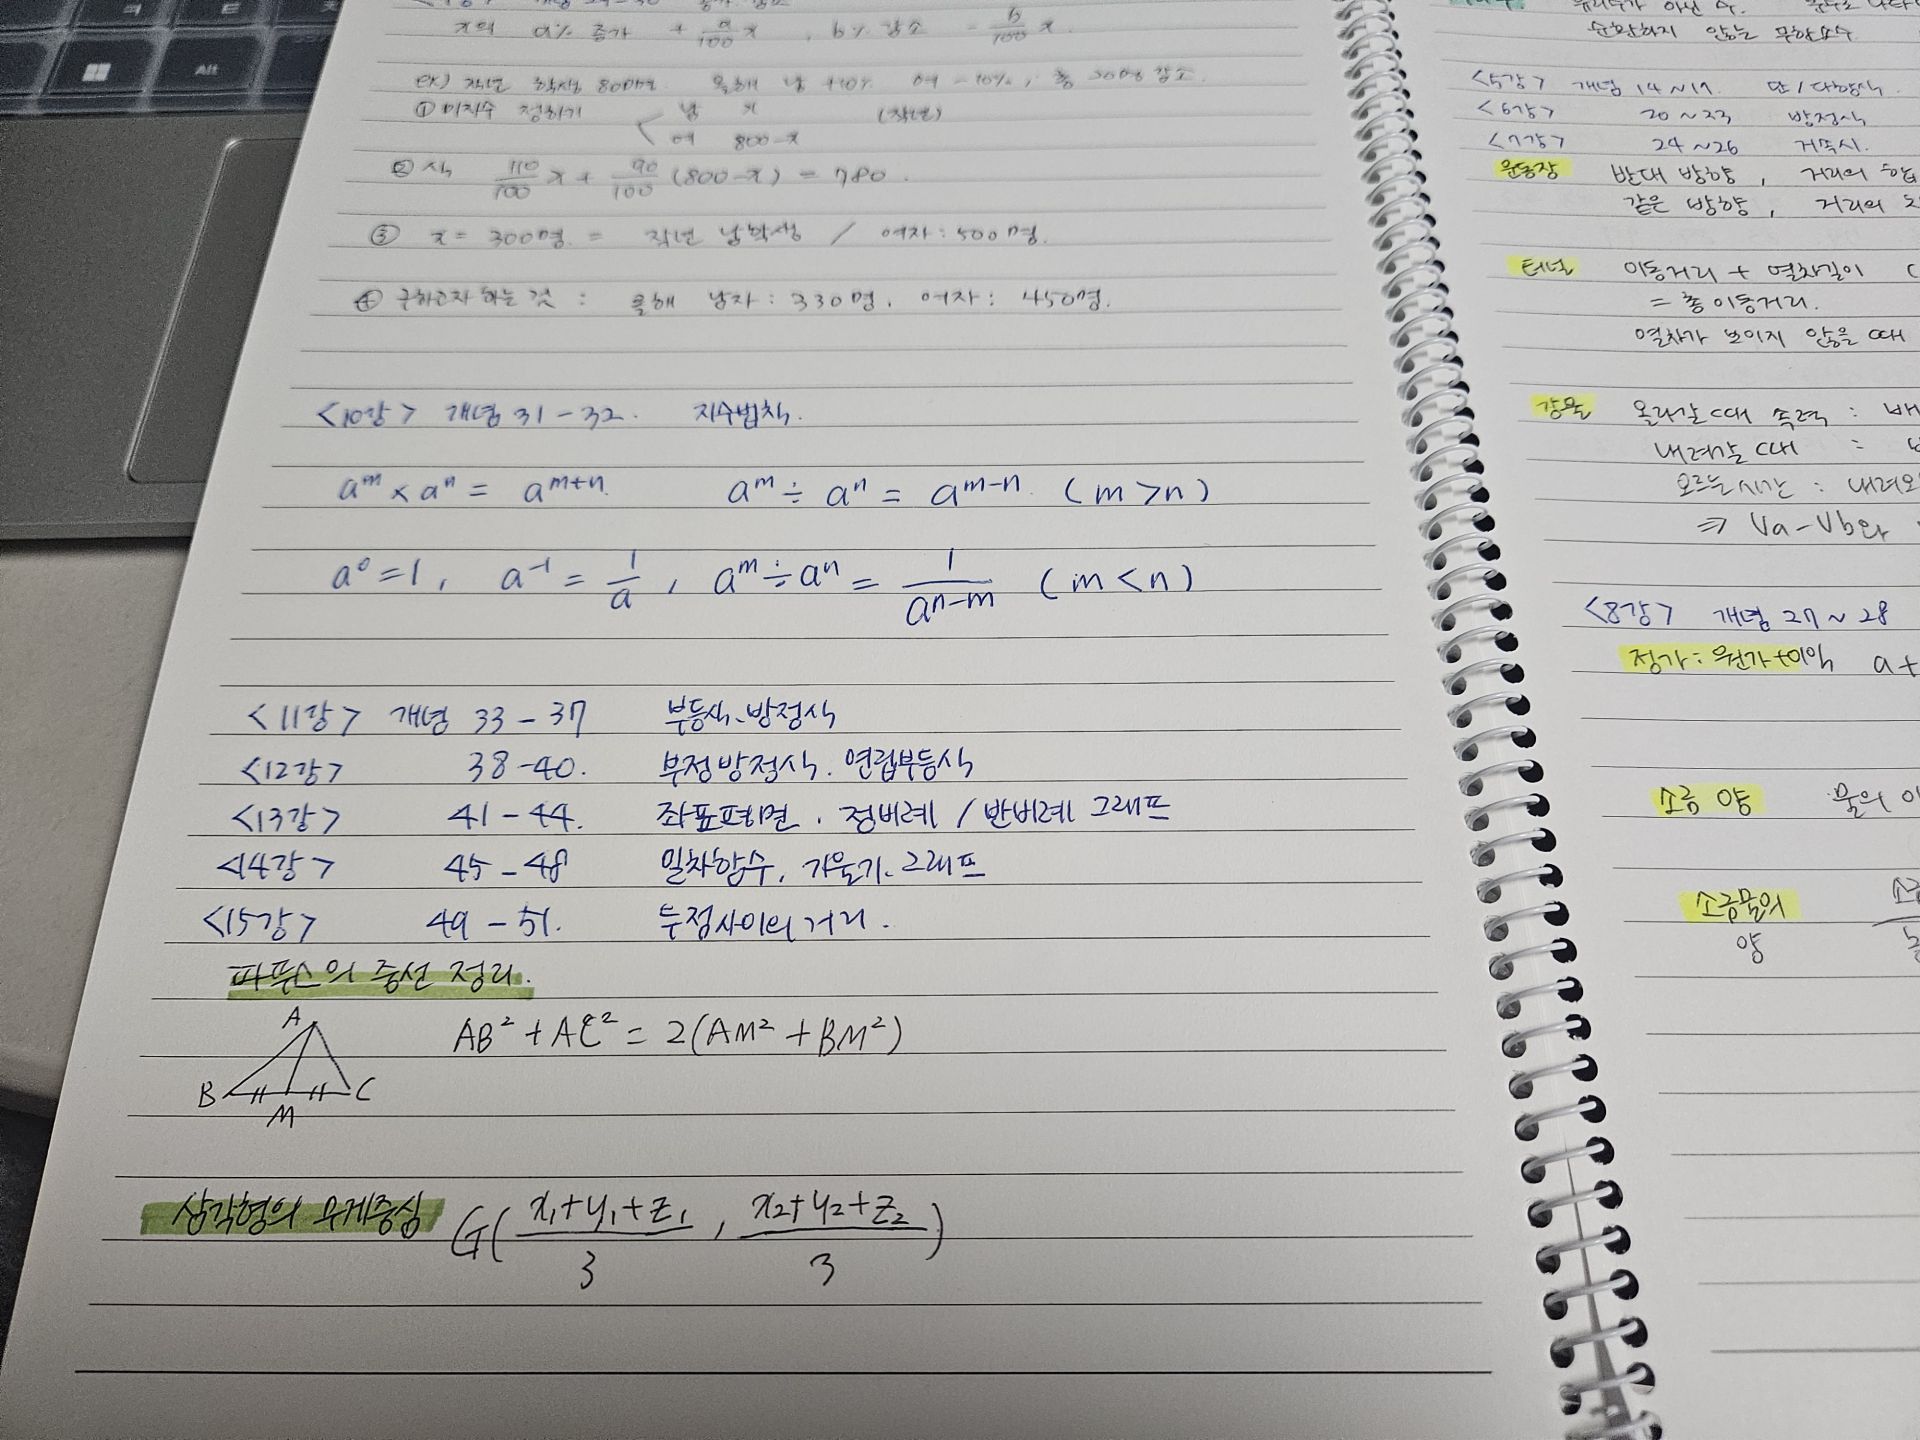 x의 a% 증가 + a/100 x , b% 감소 - b/100 x.
ex) 작년 학생 800명. 올해 남 +10% 여 -10%, 총
① 미지수 정하기 < 남 x (작년)
여 800-x
② 식 110/100 x + 90/100 (800-x) = 780.
③ x = 300명. = 작년 남학생 / 여자: 500명.
④ 구하고자 하는 것 : 올해 남자: 330명, 여자: 450명.
<10강> 개념 31-32. 지수법칙.
a^m × a^n = a^(m+n). a^m ÷ a^n = a^(m-n). (m>n)
a^0 = 1, a^-1 = 1/a, a^m ÷ a^n = 1/a^(n-m) (m<n)
<11강> 개념 33-37 부등식.방정식
<12강> 38-40. 부정방정식. 연립부등식
<13강> 41-44. 좌표평면. 정비례/반비례 그래프
<14강> 45-48 일차함수, 기울기. 그래프
<15강> 49-51. 두점사이의 거리.
파푸스의 중선 정리.
AB² + AC² = 2(AM² + BM²)
A
B C
M
삼각형의 무게중심 G( x₁+y₁+z₁/3 , x₂+y₂+z₂/3 )
유리수가 아닌 수.
순환하지 않는 무한소수
<5강> 개념 14~17. 단/다항식.
<6강> 20~23 방정식
<7강> 24~26 거속시.
운동장 반대 방향, 거리의 합
같은 방향, 거리의
터널 이동거리 + 열차길이
= 총 이동거리.
열차가 보이지 않을 때
강물 올라갈 때 속력 :
내려갈 때 :
오르는시간 :
⇒ Va-Vb와
<8강> 개념 27~28
정가: 원가+이익 a+
소금 양 물의
소금물의
양
Alt